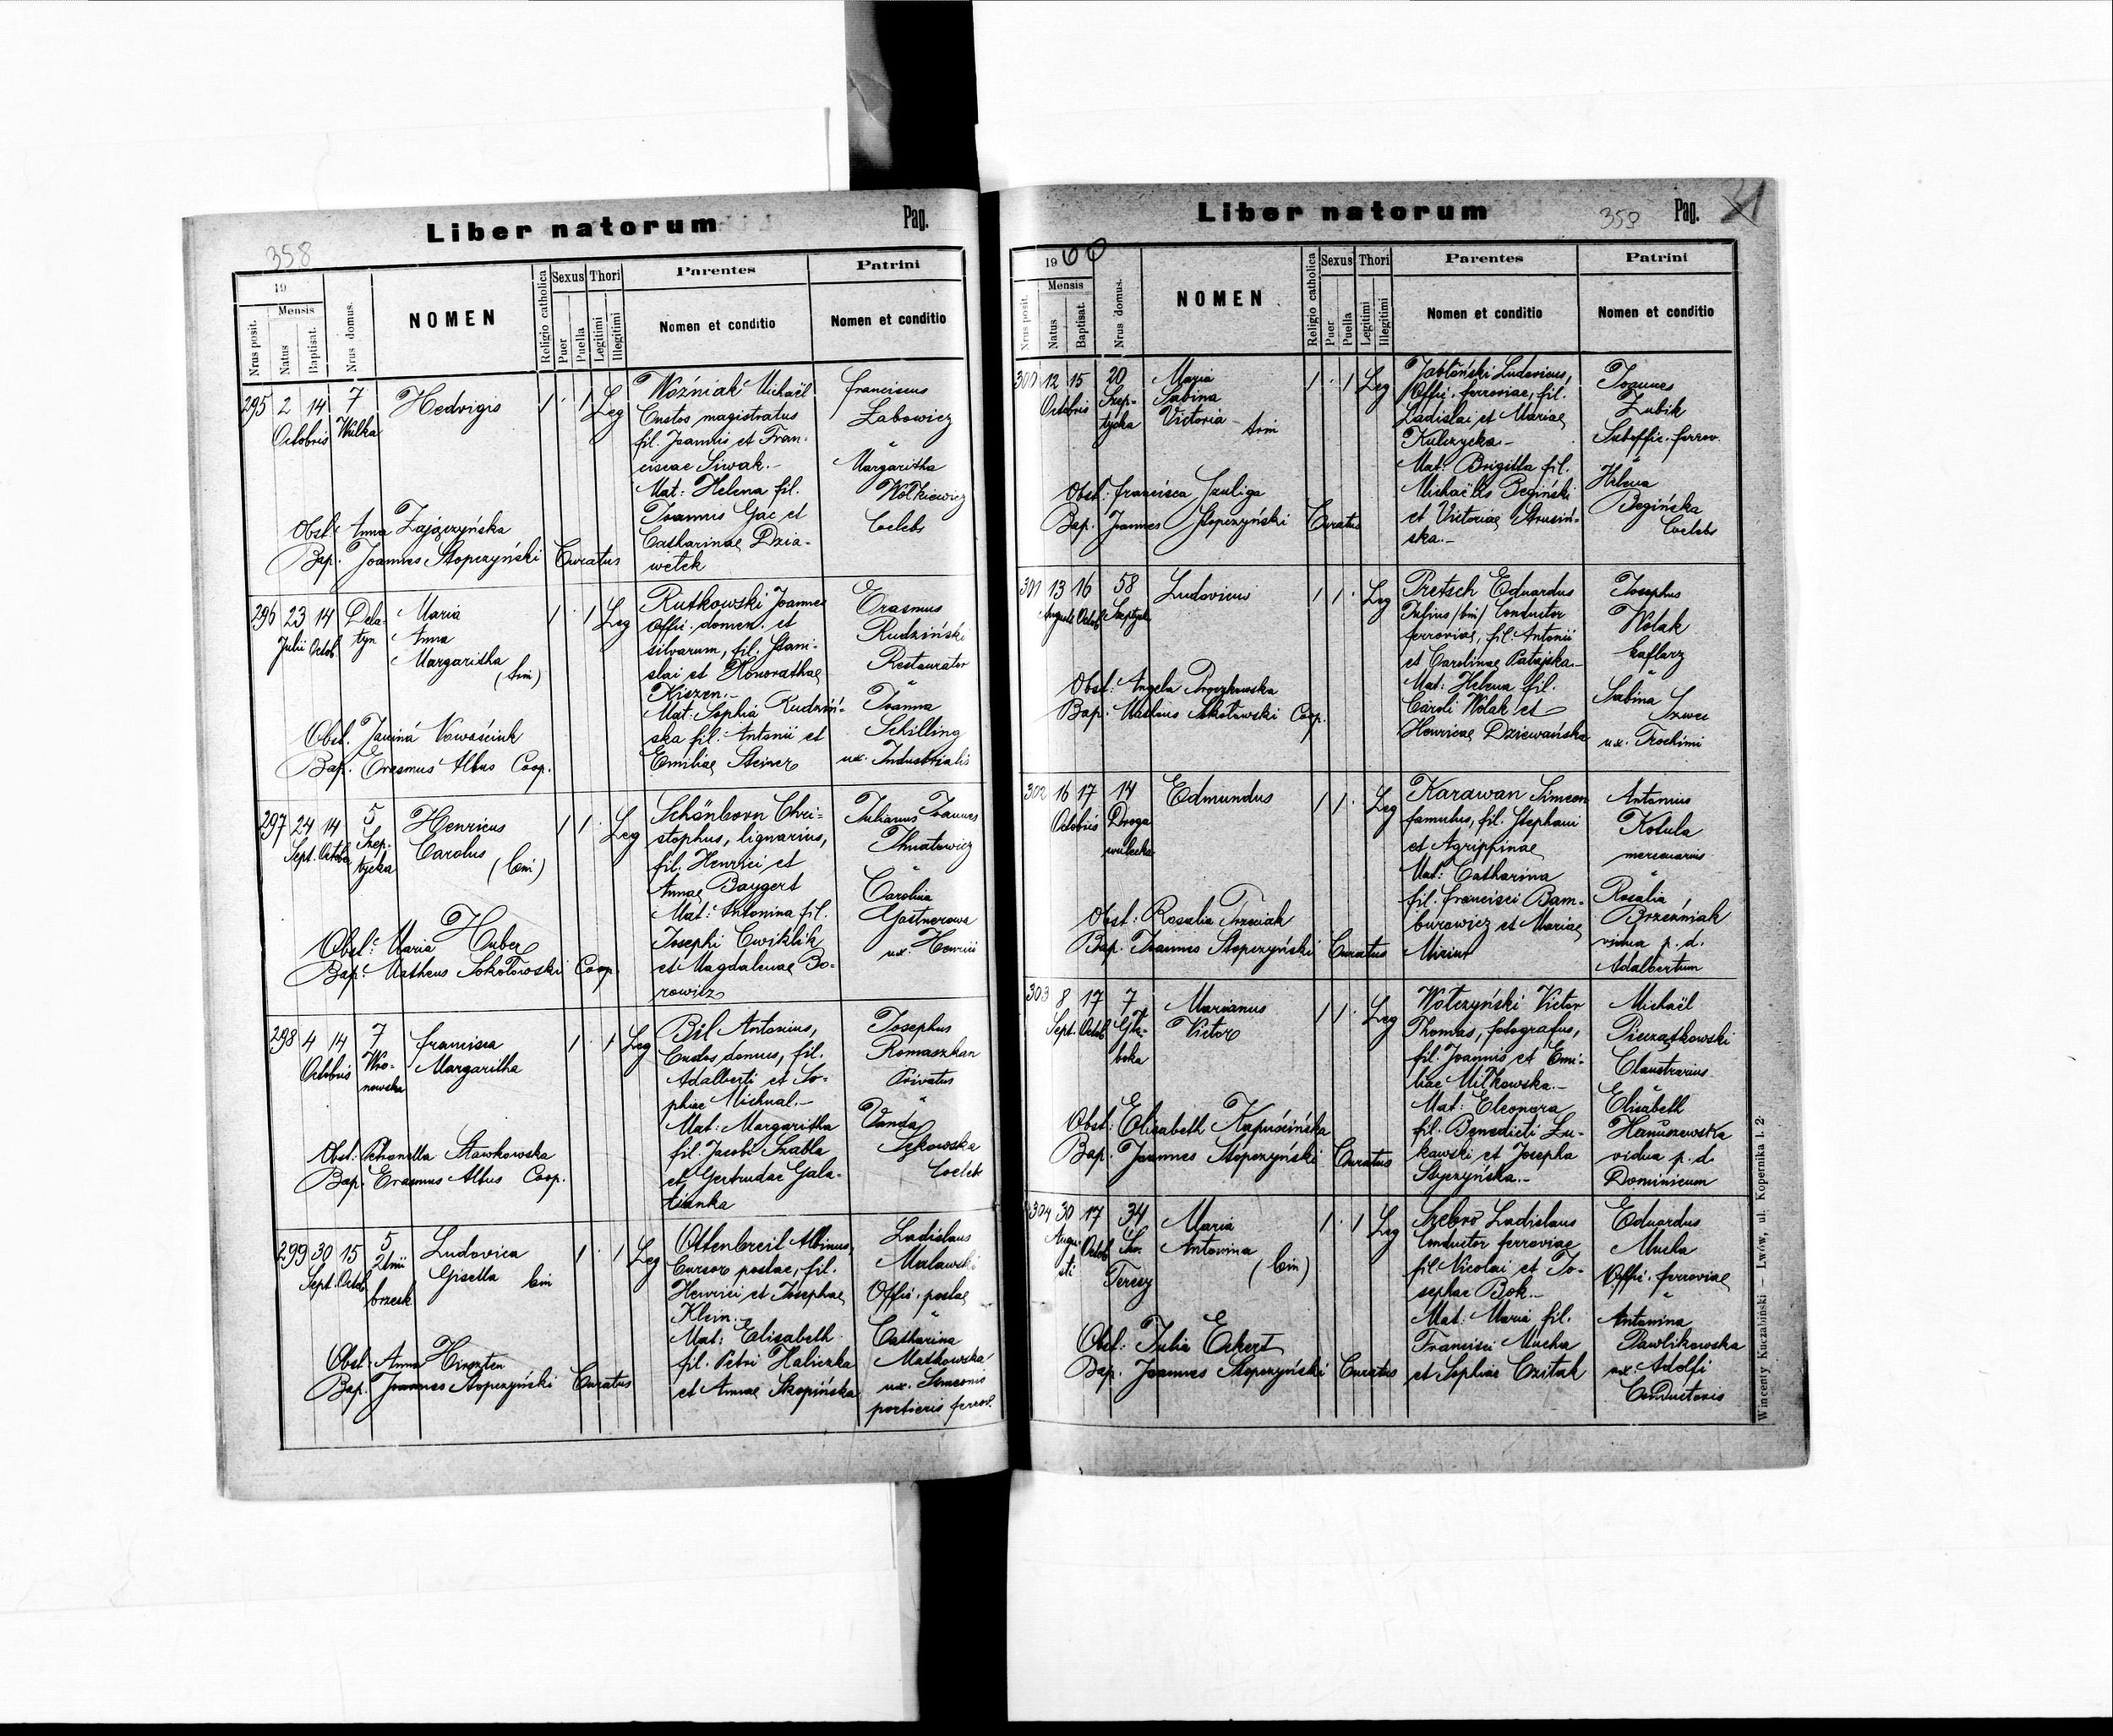 Liber natorum
Pag.
358
19
Mensis
Nrus posit.
Natus
Baptisat.
Nrus domus.
NOMEN
Religio catholica
Sexus
Puer
Puella
Thori
Legitimi
Illegitimi
Parentes
Nomen et conditio
Patrini
Nomen et conditio
295 2 14 7 Hedvigis 1 · 1 Leg
Octobris Wulka
Woźniak Michaël
Custos magistratus
fil. Joannis et Fran-
ciscae Siwak.-
Mat: Helena fil.
Joannis Gác et
Catharinae Dzia-
wetek
Franciscus
Łabowicz
"
Margaritha
Wołkiewicz
Coelebs
Obst: Anna Zajączyńska
Bap. Joannes Stopczyński Curatus
296 23 14 Dela- Maria 1 · 1 Leg
Julii Octob. tyn Anna
Margaritha
(tri)
Rutkowski Joannes
Offic. domen. et
silvarum, fil. Stani-
slai et Honorathae
Kiszen.-
Mat: Sophia Rudziń-
ska fil. Antonii et
Emiliae Steiner
Erasmus
Rudziński
Restaurator
"
Joanna
Schilling
ux. Industrialis
Obst. Janina Nowościuk
Bap. Erasmus Albus Coop.
297 24 14 5 Henricus 1 1 · Leg
Sept. Octob. Szep- Carolus
tycka (bin)
Schönborn Chri-
stophus, lignarius,
fil. Henrici et
Annae Baygert
Mat: Antonina fil.
Josephi Cwiklik
et Magdalenae Bo-
rowicz
Julianus Joannes
Ihnatowicz
"
Carolina
Gostnerowa
ux. Henrici
Obst: Maria Huber
Bap: Matheus Sokołowski Coop.
298 4 14 7 Francisca 1 · 1 Leg
Octobris Wro- Margaritha
nowska
Bil Antonius,
Custos domus, fil.
Adalberti et So-
phiae Michnal.-
Mat: Margaritha
fil. Jacobi Szabla
et Gertrudae Gala-
tianka
Josephus
Romaszkan
Privatus
"
Vanda
Sękowska
Coeleb
Obst: Petronella Stawkowska
Bap. Erasmus Albus Coop.
299 30 15 5 Ludovica 1 · 1 Leg
Sept. Octob. Gisella bin
brzesk
Ottenbreit Albinus,
Cursor postae, fil.
Henrici et Josephae
Klein.-
Mat: Elisabeth
fil. Petri Haliczka
et Annae Skopińska
Ladislaus
Malawski
Offic. postae
"
Catharina
Matkowska
ux. Simeonis
portieris ferrov.
Obst: Anna Hirszten
Bap. Joannes Stopczyński Curatus
Liber natorum
359
Pag.
1900
Mensis
Nrus posit.
Natus
Baptisat.
Nrus domus.
NOMEN
Religio catholica
Sexus
Puer
Puella
Thori
Legitimi
Illegitimi
Parentes
Nomen et conditio
Patrini
Nomen et conditio
300 12 15 20 Maria 1 · 1 Leg
Octobris Szep- Sabina
tycka Victoria trin
Jabłoński Ludovicus,
Offic. ferroviae, fil.
Ladislai et Mariae
Kulczycka-
Mat: Brigitta fil.
Michaëlis Begiński
et Victoriae Strusiń-
ska.-
Joannes
Zubik
Suboffic. ferrov.
"
Helena
Begińska
Coelebs
Obst: Francisca Szuliga
Bap. Joannes Stopczyński Curatus
301 13 16 58 Ludovicus 1 1 · Leg
Augusti Octob. Szeptyck
Pretsch Eduardus
Julius /bin/ Conductor
ferroviae, fil. Antonii
et Carolinae Patajska-
Mat: Helena fil.
Caroli Wolak et
Henricae Dziewańska
Josephus
Wolak
kaflarz
"
Sabina
Szwec
ux. Trochimi
Obst: Angela Proszkowska
Bap: Matheus Sokołowski Coop.
302 16 17 14 Edmundus 1 1 · Leg
Octobris Droga
wulecka
Karawan Simeon
famulus, fil. Stephani
et Agrippinae
Mat: Catharina
fil. Francisci Bam-
burowicz et Mariae
Antonius
Kotula
mercenarius
"
Rosalia
Brzeźniak
vidua p. d.
Adalbertum
Obst: Rosalia Trzeciak
Bap. Joannes Stopczyński Curatus
303 8 17 7 Marianus 1 1 · Leg
Sept. Octob. Głę- Victor
boka
Wołczyński Victor
Thomas, fotografus,
fil. Joannis et Emi-
liae Miłkowska.-
Mat: Eleonora
fil. Benedicti Łu-
kawski et Josepha
Styczyńska.-
Michaël
Pieczątkowski
Claustrarius
"
Elisabeth
Hanuszewska
vidua p. d.
Dominicum
Obst: Elisabeth Kapuścińska
Bap. Joannes Stopczyński Curatus
304 30 17 34 Maria 1 · 1 Leg
Augu- Octob. Św. Antonina (bin)
sti Teresy
Srebro Ladislaus
Conductor ferroviae
fil. Nicolai et Jo-
sephae Bok.-
Mat: Maria fil.
Francisci Mucha
et Sophiae Czitak
Eduardus
Mucha
Offic. ferroviae
"
Antonina
Pawlikowska
ux. Adolfi
Conductoris
Obst: Julia Eckert
Bap. Joannes Stopczyński Curatus
Wincenty Kuczabiński — Lwów, ul. Kopernika l. 2·